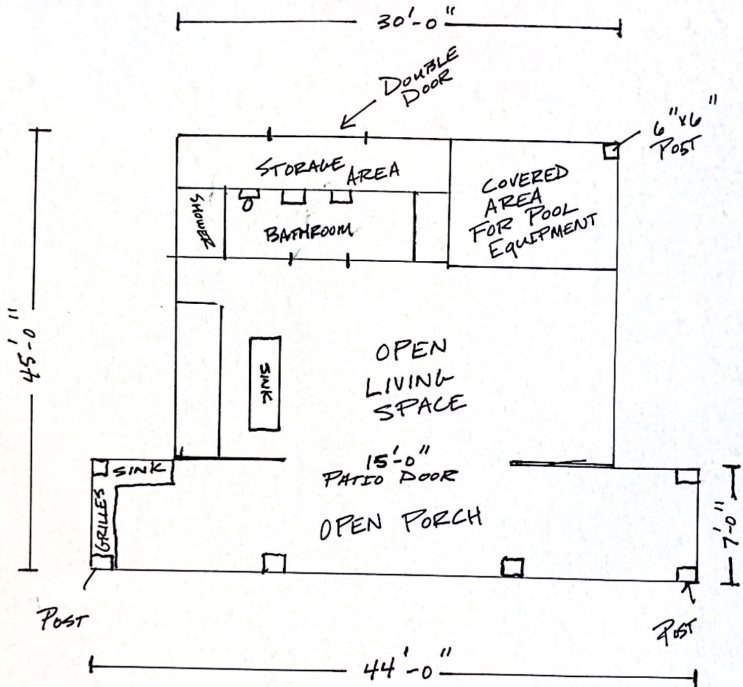 30'-0"
DOUBLE
DOOR
6"x6"
POST
STORAGE AREA
COVERED
AREA
FOR POOL
EQUIPMENT
SHOWER
BATHROOM
45'-0"
OPEN
LIVING
SPACE
SINK
15'-0"
PATIO DOOR
SINK
GRILLES
OPEN PORCH
7'-0"
POST
POST
44'-0"